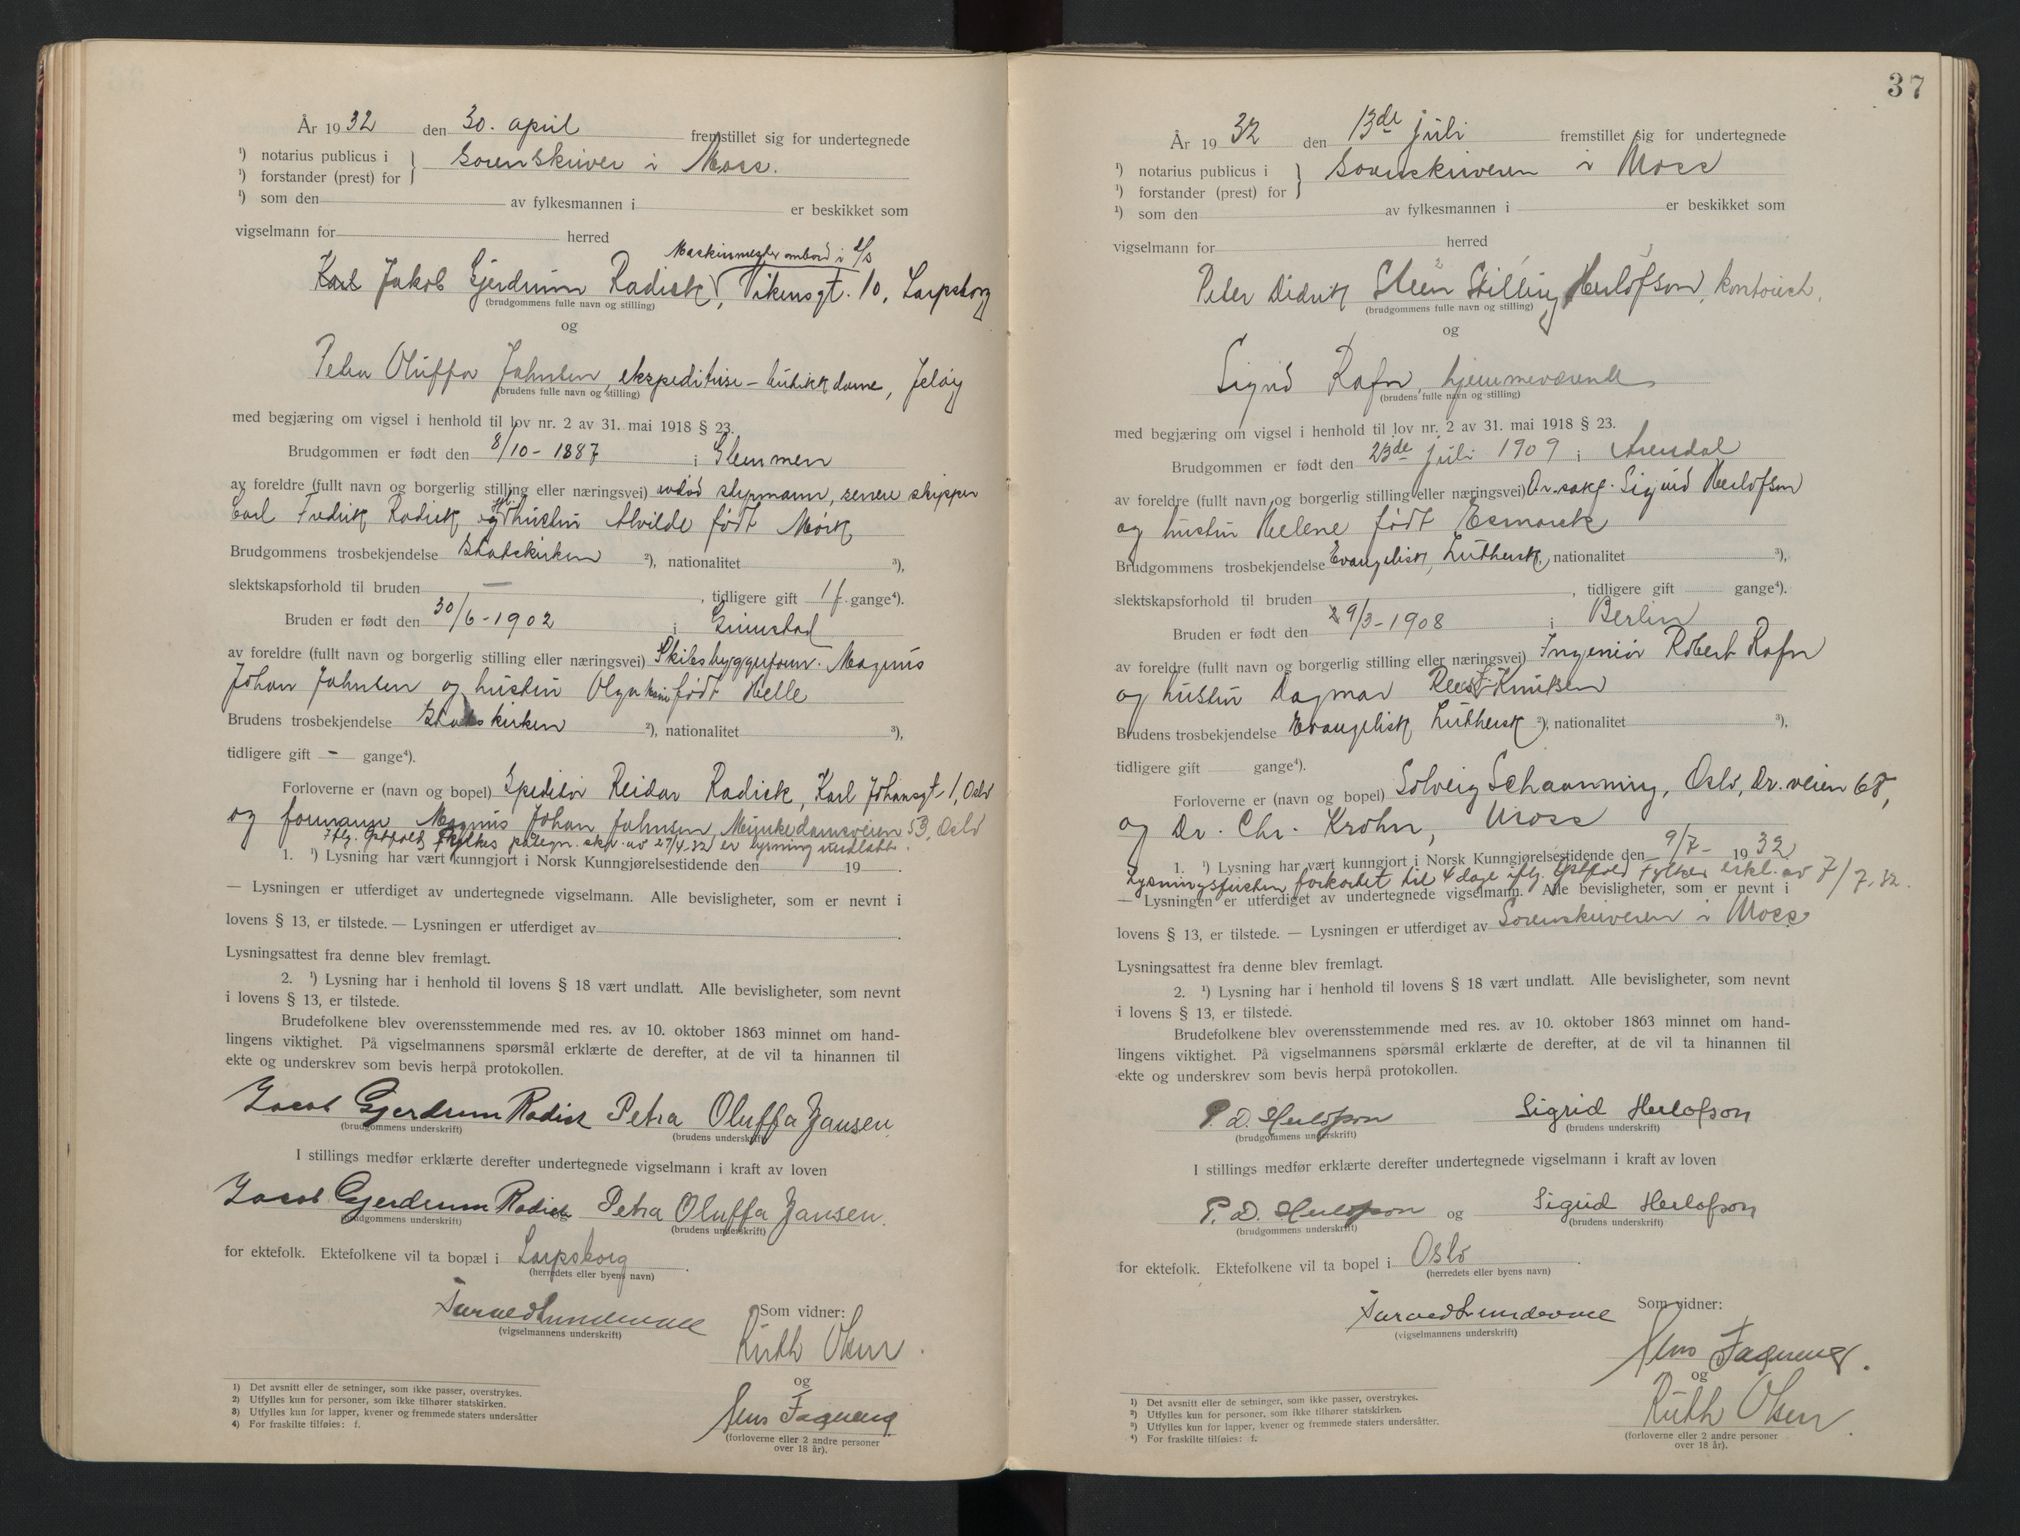 År 1932 den 30. april fremstillet sig for undertegnede
¹) notarius publicus i } Sorenskriver i Moss.
¹) forstander (prest) for
¹) som den av fylkesmannen i er beskikket som
vigselmann for herred
Maskinmester ombord i
Karl Jakob Gjerdrum Radick, Vikensgt. 10, Sarpsborg
(brudgommens fulle navn og stilling)
og
Petra Oluffa Jahnsen, ekspeditrise - butikkdame, Jeløy
(brudens fulle navn og stilling)
med begjæring om vigsel i henhold til lov nr. 2 av 31. mai 1918 § 23.
Brudgommen er født den 8/10-1887 i Glemmen
av foreldre (fullt navn og borgerlig stilling eller næringsvei) styrmann, senere skipper
Carl Fredrik Radick og hustru Alvilde født Mørk
Brudgommens trosbekjendelse Statskirken ²), nationalitet ³),
slektskapsforhold til bruden — , tidligere gift 1 f. gange⁴).
Bruden er født den 30/6-1902 i Grimstad
av foreldre (fullt navn og borgerlig stilling eller næringsvei) Skibsbyggerform. Magnus
Johan Jahnsen og hustru Olga født Helle
Brudens trosbekjendelse Statskirken ²), nationalitet ³),
tidligere gift - gange⁴).
Forloverne er (navn og bopel) Speditør Reidar Radick, Karl Johansgt. 1, Oslo
og formann Magnus Johan Jahnsen, Munkedamsveien 53, Oslo
Iflg. Østfold Fylkes påtegn. skr. av 27/4-32 er lysning undlatt.
1. ¹) Lysning har vært kunngjort i Norsk Kunngjørelsestidende den 19
— Lysningen er utferdiget av undertegnede vigselmann. Alle bevisligheter, som er nevnt i
lovens § 13, er tilstede. — Lysningen er utferdiget av .
Lysningsattest fra denne blev fremlagt.
2. ¹) Lysning har i henhold til lovens § 18 vært undlatt. Alle bevisligheter, som nevnt
i lovens § 13, er tilstede.
Brudefolkene blev overensstemmende med res. av 10. oktober 1863 minnet om hand-
lingens viktighet. På vigselmannens spørsmål erklærte de derefter, at de vil ta hinannen til
ekte og underskrev som bevis herpå protokollen.
Jacob Gjerdrum Radick Petra Oluffa Jansen
(brudgommens underskrift) (brudens underskrift)
I stillings medfør erklærte derefter undertegnede vigselmann i kraft av loven
Jacob Gjerdrum Radick og Petra Oluffa Jansen.
(brudgommens underskrift) (brudens underskrift)
for ektefolk. Ektefolkene vil ta bopæl i Sarpsborg .
(herredets eller byens navn)
Som vidner:
Tarald Lundevall
(vigselmannens underskrift)
Ruth Olsen.
og
Jens Fagneng
(forloverne eller 2 andre personer
over 18 år).
1) Det avsnitt eller de setninger, som ikke passer, overstrykes.
2) Utfylles kun for personer, som ikke tilhører statskirken.
3) Utfylles kun for lapper, kvener og fremmede staters undersåtter
4) For fraskilte tilføies: f.
37
År 1932 den 13de juli fremstillet sig for undertegnede
¹) notarius publicus i } Sorenskriveren i Moss
¹) forstander (prest) for
¹) som den av fylkesmannen i er beskikket som
vigselmann for herred
Peter Didrik Steen Stilling Herlofson, kontorist.
(brudgommens fulle navn og stilling)
og
Sigrid Rafn, hjemmeværende
(brudens fulle navn og stilling)
med begjæring om vigsel i henhold til lov nr. 2 av 31. mai 1918 § 23.
Brudgommen er født den 23de juli 1909 i Arendal
av foreldre (fullt navn og borgerlig stilling eller næringsvei) O.r.sakf. Sigurd Herlofson
og hustru Helene født Esmarck
Brudgommens trosbekjendelse Evangelisk Luthersk ²), nationalitet ³),
slektskapsforhold til bruden , tidligere gift gange⁴).
Bruden er født den 29/3-1908 i Berlin
av foreldre (fullt navn og borgerlig stilling eller næringsvei) Ingeniør Robert Rafn
og hustru Dagmar Knutsen
Brudens trosbekjendelse Evangelisk Luthersk ²), nationalitet ³),
tidligere gift gange⁴).
Forloverne er (navn og bopel) Solveig Schaanning, Oslo, Dr.veien 68,
og Dr. Chr. Krohn, Moss
1. ¹) Lysning har vært kunngjort i Norsk Kunngjørelsestidende den 9/7- 1932
Lysningsfristen forkortet til 4 dage iflg. Østfold Fylkes erkl. av 7/7.32.
— Lysningen er utferdiget av undertegnede vigselmann. Alle bevisligheter, som er nevnt i
lovens § 13, er tilstede. — Lysningen er utferdiget av Sorenskriveren i Moss
Lysningsattest fra denne blev fremlagt.
2. ¹) Lysning har i henhold til lovens § 18 vært undlatt. Alle bevisligheter, som nevnt
i lovens § 13, er tilstede.
Brudefolkene blev overensstemmende med res. av 10. oktober 1863 minnet om hand-
lingens viktighet. På vigselmannens spørsmål erklærte de derefter, at de vil ta hinannen til
ekte og underskrev som bevis herpå protokollen.
P. D. Herlofson Sigrid Herlofson
(brudgommens underskrift) (brudens underskrift)
I stillings medfør erklærte derefter undertegnede vigselmann i kraft av loven
P. D. Herlofson og Sigrid Herlofson
(brudgommens underskrift) (brudens underskrift)
for ektefolk. Ektefolkene vil ta bopel i Oslo .
(herredets eller byens navn)
Som vidner:
Tarald Lundevall
(vigselmannens underskrift)
Jens Fagneng.
og
Ruth Olsen.
(forloverne eller 2 andre personer
over 18 år).
¹) Det avsnitt eller de setninger, som ikke passer, overstrykes.
²) Utfylles kun for personer, som ikke tilhører statskirken.
³) Utfylles kun for lapper, kvener og fremmede staters undersåtter.
⁴) For fraskilte tilføies: f.